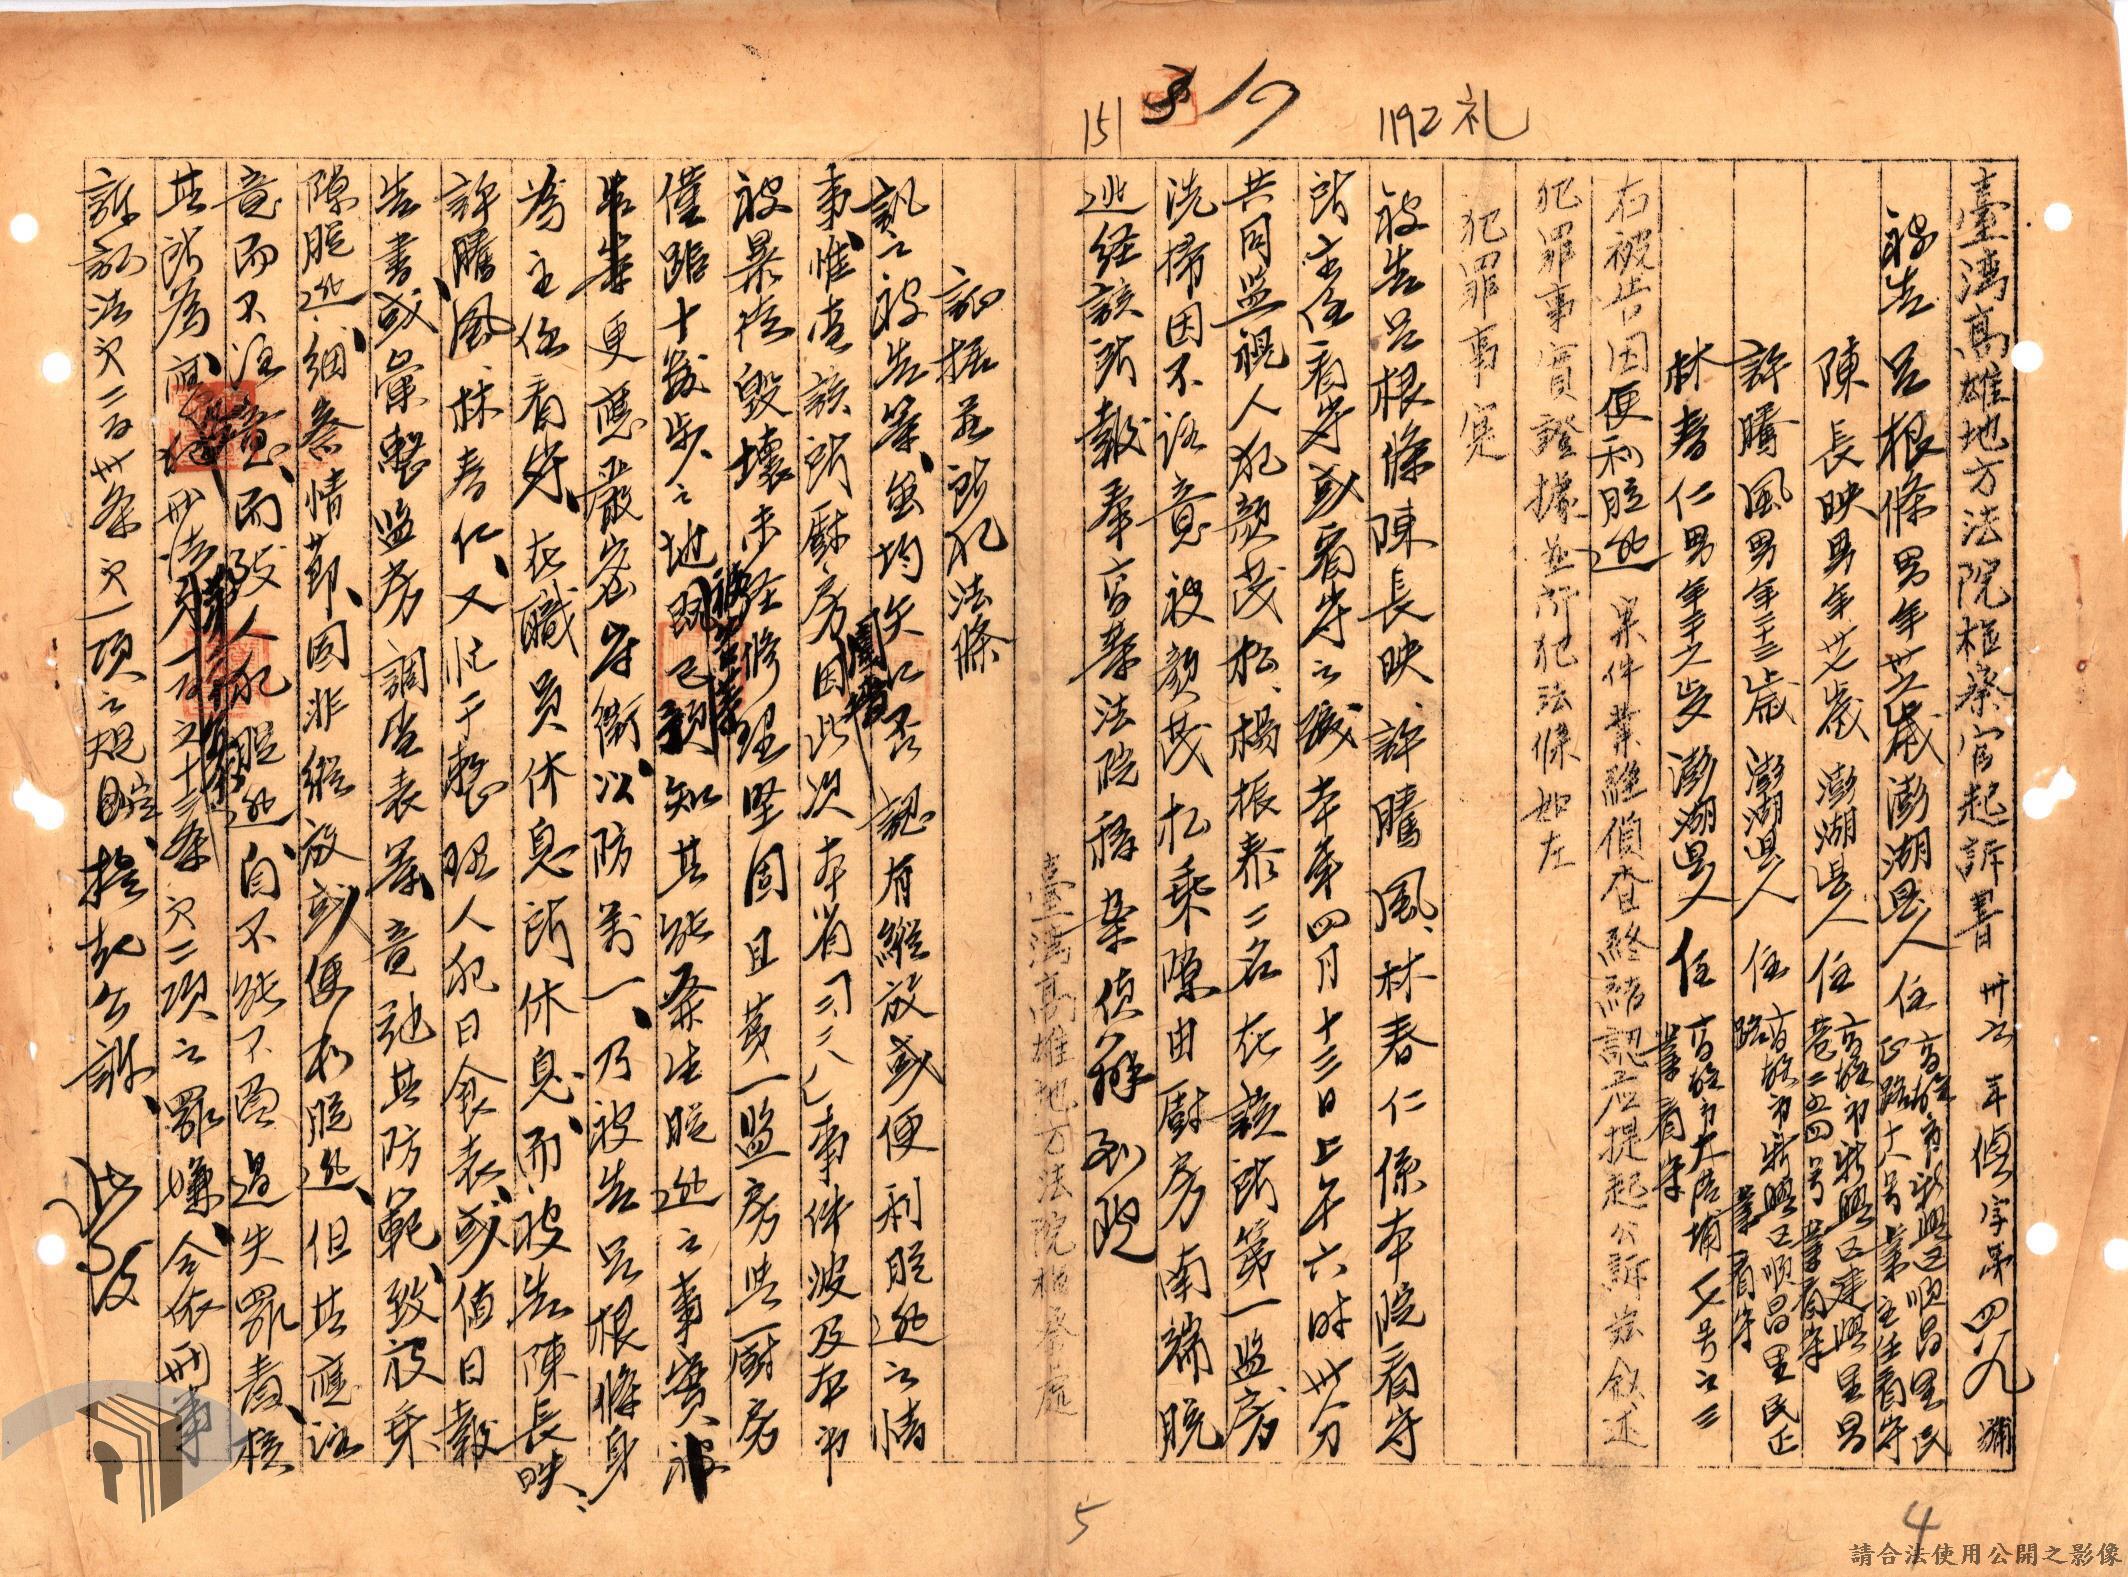 1192 礼
151
臺灣高雄地方法院檢察官起訴書 卅六年偵字第四八九號
被告 呂根條 男年廿六歲 澎湖縣人 住 高雄市新興區順昌里民正路十八号 業主任看守
陳長映 男年廿七歲 澎湖県人 住 高雄市新興区建興里男巷二五四号 業看守
許騰風 男年二十三歲 澎湖県人 住 高雄市新興区順昌里民正路 業看守
林春仁 男年二十九歲 澎湖県人 住 高雄市大港埔 号之三 業看守
右被告因便利脫逃案件業經偵查終結認应提起公訴茲敘述
犯罪事實證據並所犯法條如左
犯罪事實
被告呂根條陳長映、許騰風、林春仁係本院看守
所主任看守或看守之職本年四月十三日上午六時卅分
共同監視人犯顏茂松、楊振泰二名在該所第一監房
洗掃因不注意被顏茂松乘隙由厨房南端脫
逃经該所報奉高等法院移案偵辦到院
臺灣高雄地方法院檢察處
証據並所犯法條
訊之被告等、虽均矢口否認有縱放或便利脫逃之情
事惟查該所厨房因此次本省二二八事件波及本市
被暴徒毀壞未经修理坚固且第一監房与厨房
僅距十幾步之地既已預知其能發生脫逃之事實、被
告等更應嚴密守衛、以防万一、乃被告呂根條身
為主任看守、在職員休息所休息、而被告陳長映、
許騰風、林春仁、又忙于整理人犯日食表、或值日報
告書或彙整监房調查表等竟弛其防範、致被乘
隙脫逃、細察情节、固非縱放或便利脫逃、但其應注
意而不注意、而致人犯脫逃、自不能不負過失罪責、核
其所為應構刑法第一百六十三条第二項之罪嫌、合依刑事
訴訟法第二百卅条第一項之規定、提起公訴、此致
5
4
請合法使用公開之影像